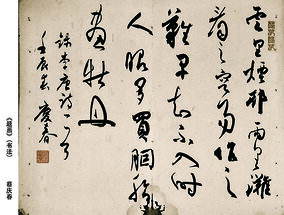 雲里煙邨雨里灘
看之容易作之
難早知不入時
人眼多買胭脂
畫牡丹
錄李唐詩一首
壬辰春 慶春
《题画》(书法) 蔡庆春